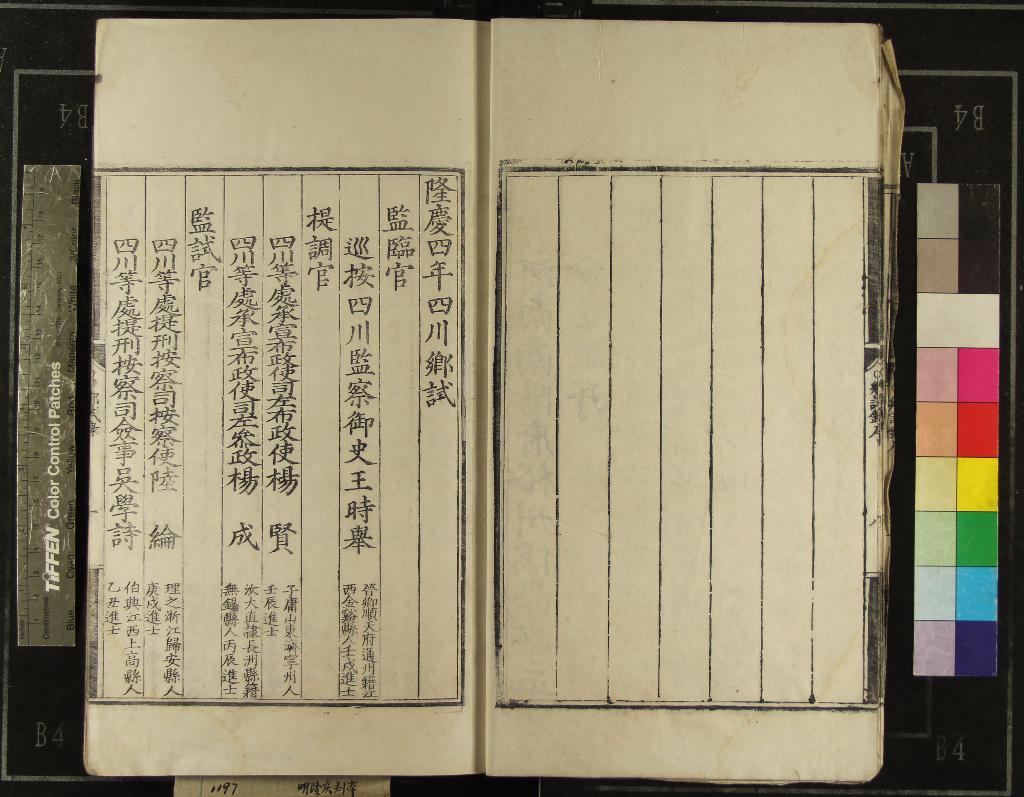 隆慶四年四川鄉試
監臨官
巡按四川監察御史王時舉
晉卿順天府通州籍江
西金谿縣人壬戌進士
提調官
四川等處承宣布政使司左布政使楊 賢
子庸山東濟寧州人
壬辰進士
四川等處承宣布政使司左叅政楊 成
汝大直隸長洲縣籍
無錫縣人丙辰進士
監試官
四川等處提刑按察司按察使陸 綸
理之浙江歸安縣人
庚戌進士
四川等處提刑按察司僉事吳學詩
伯興江西上高縣人
乙丑進士
TIFFEN Color Control Patches
Blue
Cyan
Green
Yellow
Red
Magenta
White
3/Color
Black
Centimetres
Inches
B4
B4
B4
B4
A
1197
明隆庆刻本